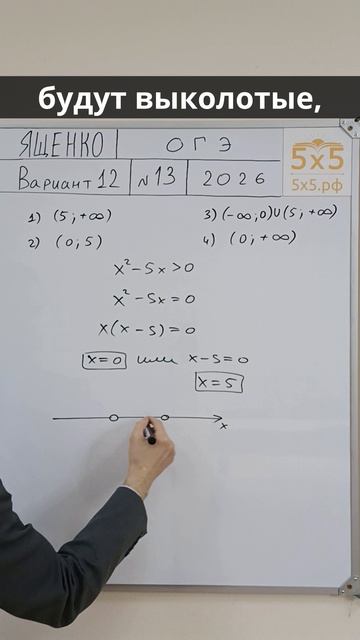 будут выколотые,
ЯЩЕНКО ОГЭ
Вариант 12 №13 2026
5х5
5х5.рф
1) (5; +∞) 3) (-∞; 0)∪(5; +∞)
2) (0; 5) 4) (0; +∞)
x² - 5x > 0
x² - 5x = 0
x(x - 5) = 0
x = 0 или x - 5 = 0
x = 5
x